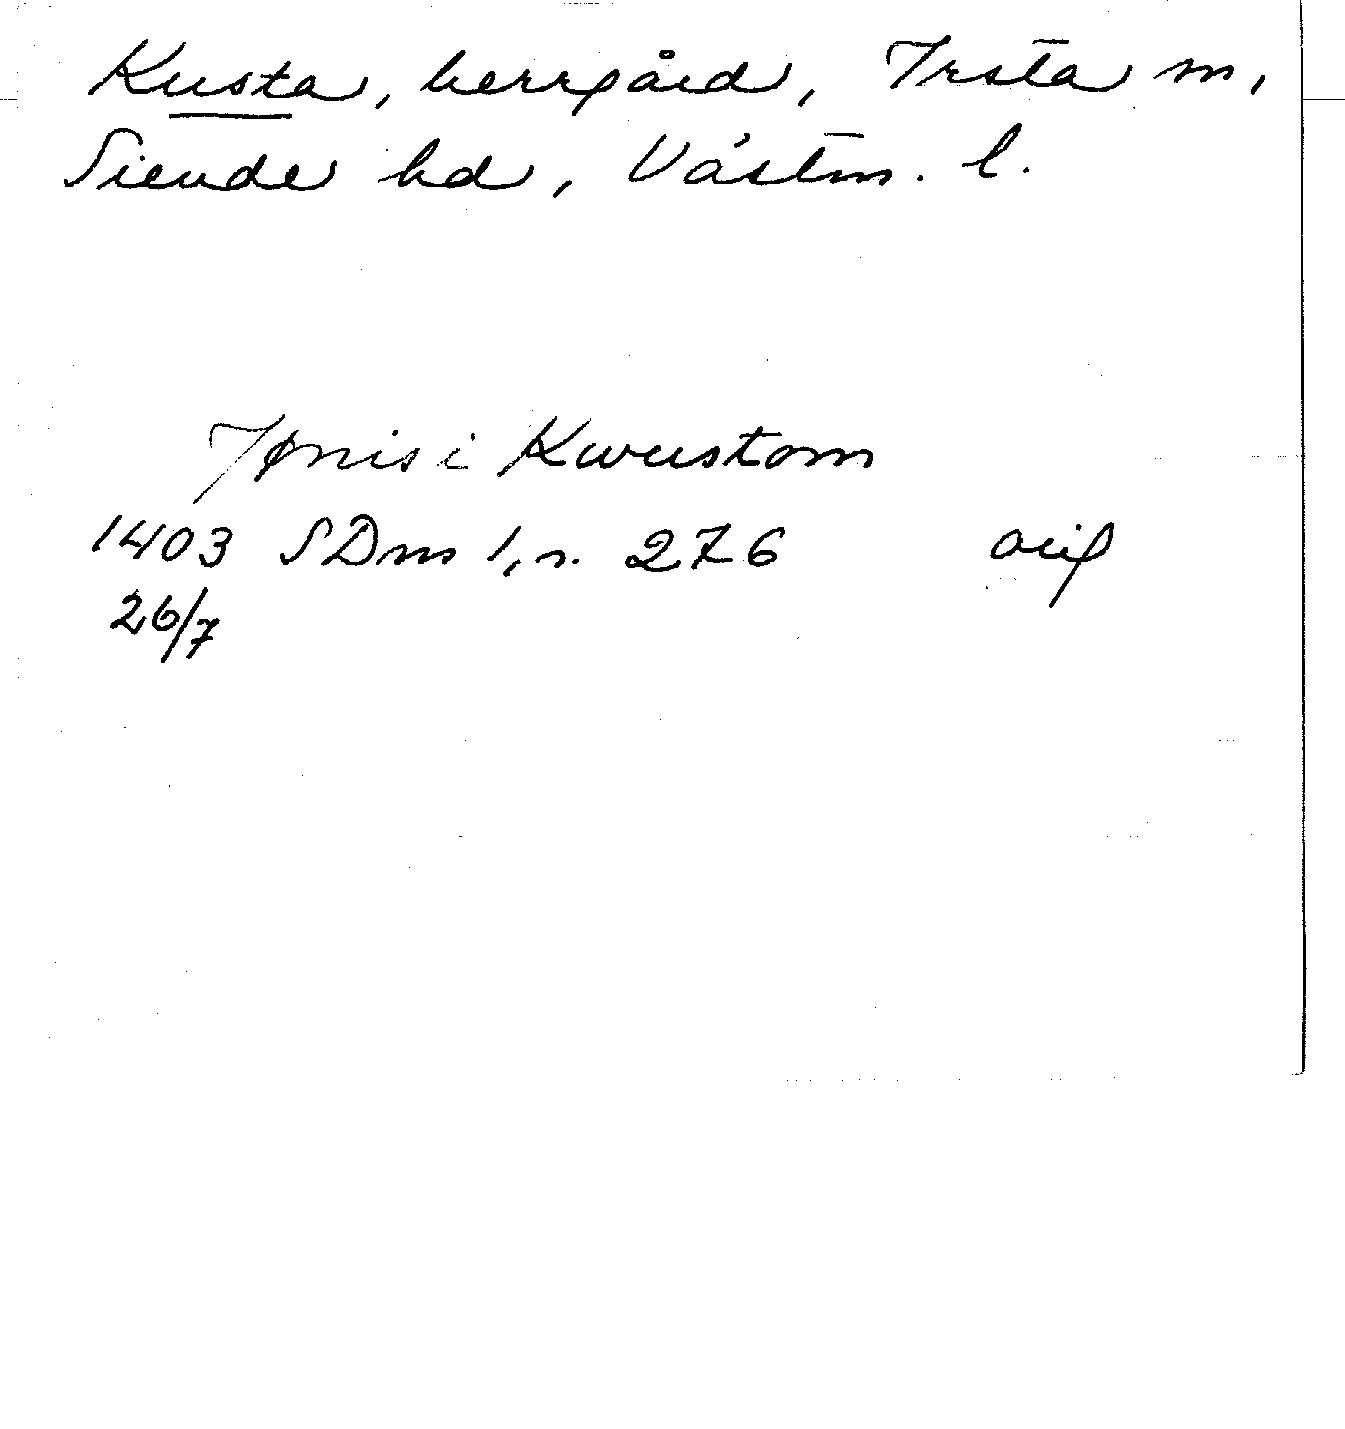 Kusta, herrgård, Irsta sn,
Siende hd, Västm. l.
Jønis i Kwustom
1403 SDns 1, s. 276 orig
26/7